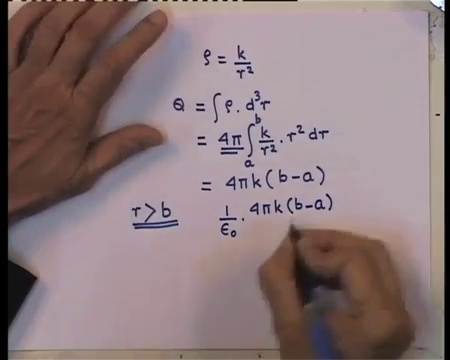 ρ = k/r²
Q = ∫ ρ. d³r
= 4π ∫ₐᵇ k/r² . r² dr
= 4πk (b-a)
r > b 1/ε₀ . 4πk (b-a)